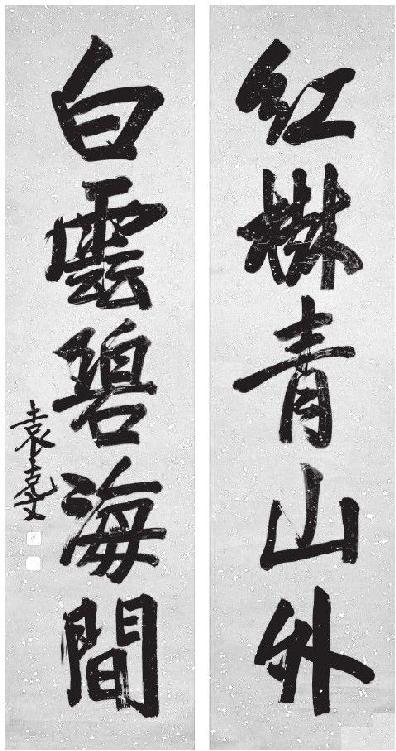 紅樹青山外
白雲碧海間
袁克文